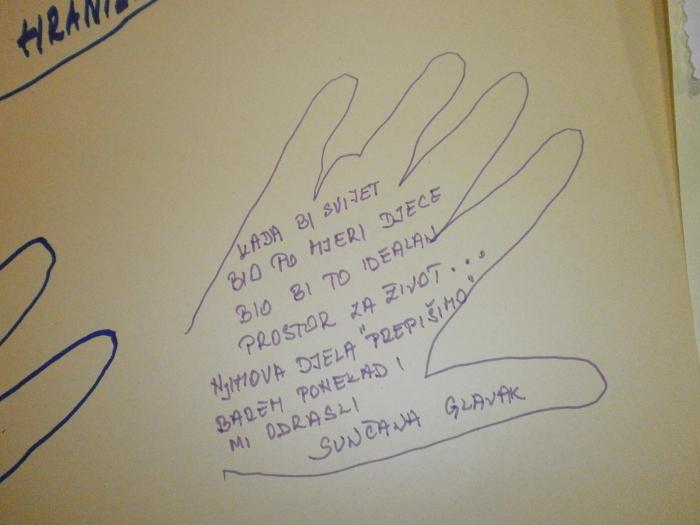 KADA BI SVIJET
BIO PO MJERI DJECE
BIO BI TO IDEALAN
PROSTOR ZA ŽIVOT...
NJIHOVA DJELA "PREPIŠIMO"
BAREM PONEKAD I
MI ODRASLI
SUNČANA GLAVAK